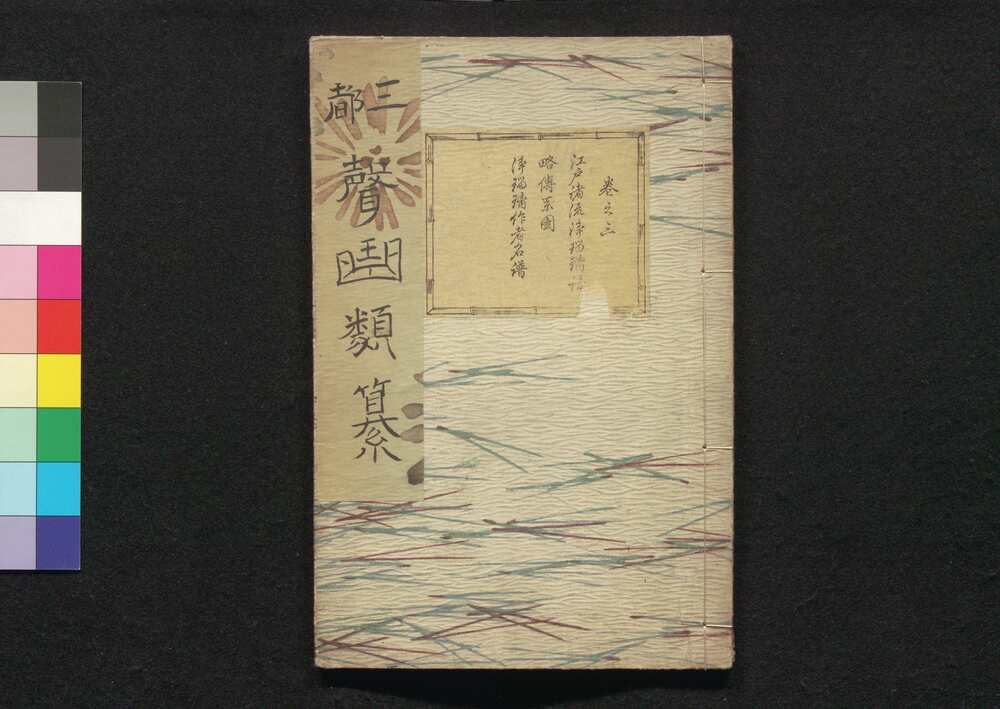 三都
聲曲類纂
卷之三
江戸諸流浄瑠璃
略傳系圖
浄瑠璃作者名譜